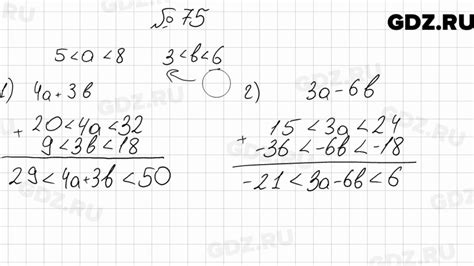 № 75
GDZ.RU
5<a<8   3<b<6
1) 4a+3b
+ 20<4a<32
9<3b<18
29<4a+3b<50
2) 3a-6b
+ 15<3a<24
-36<-6b<-18
-21<3a-6b<6
GDZ.RU
GDZ.RU
GDZ.RU
GDZ.RU